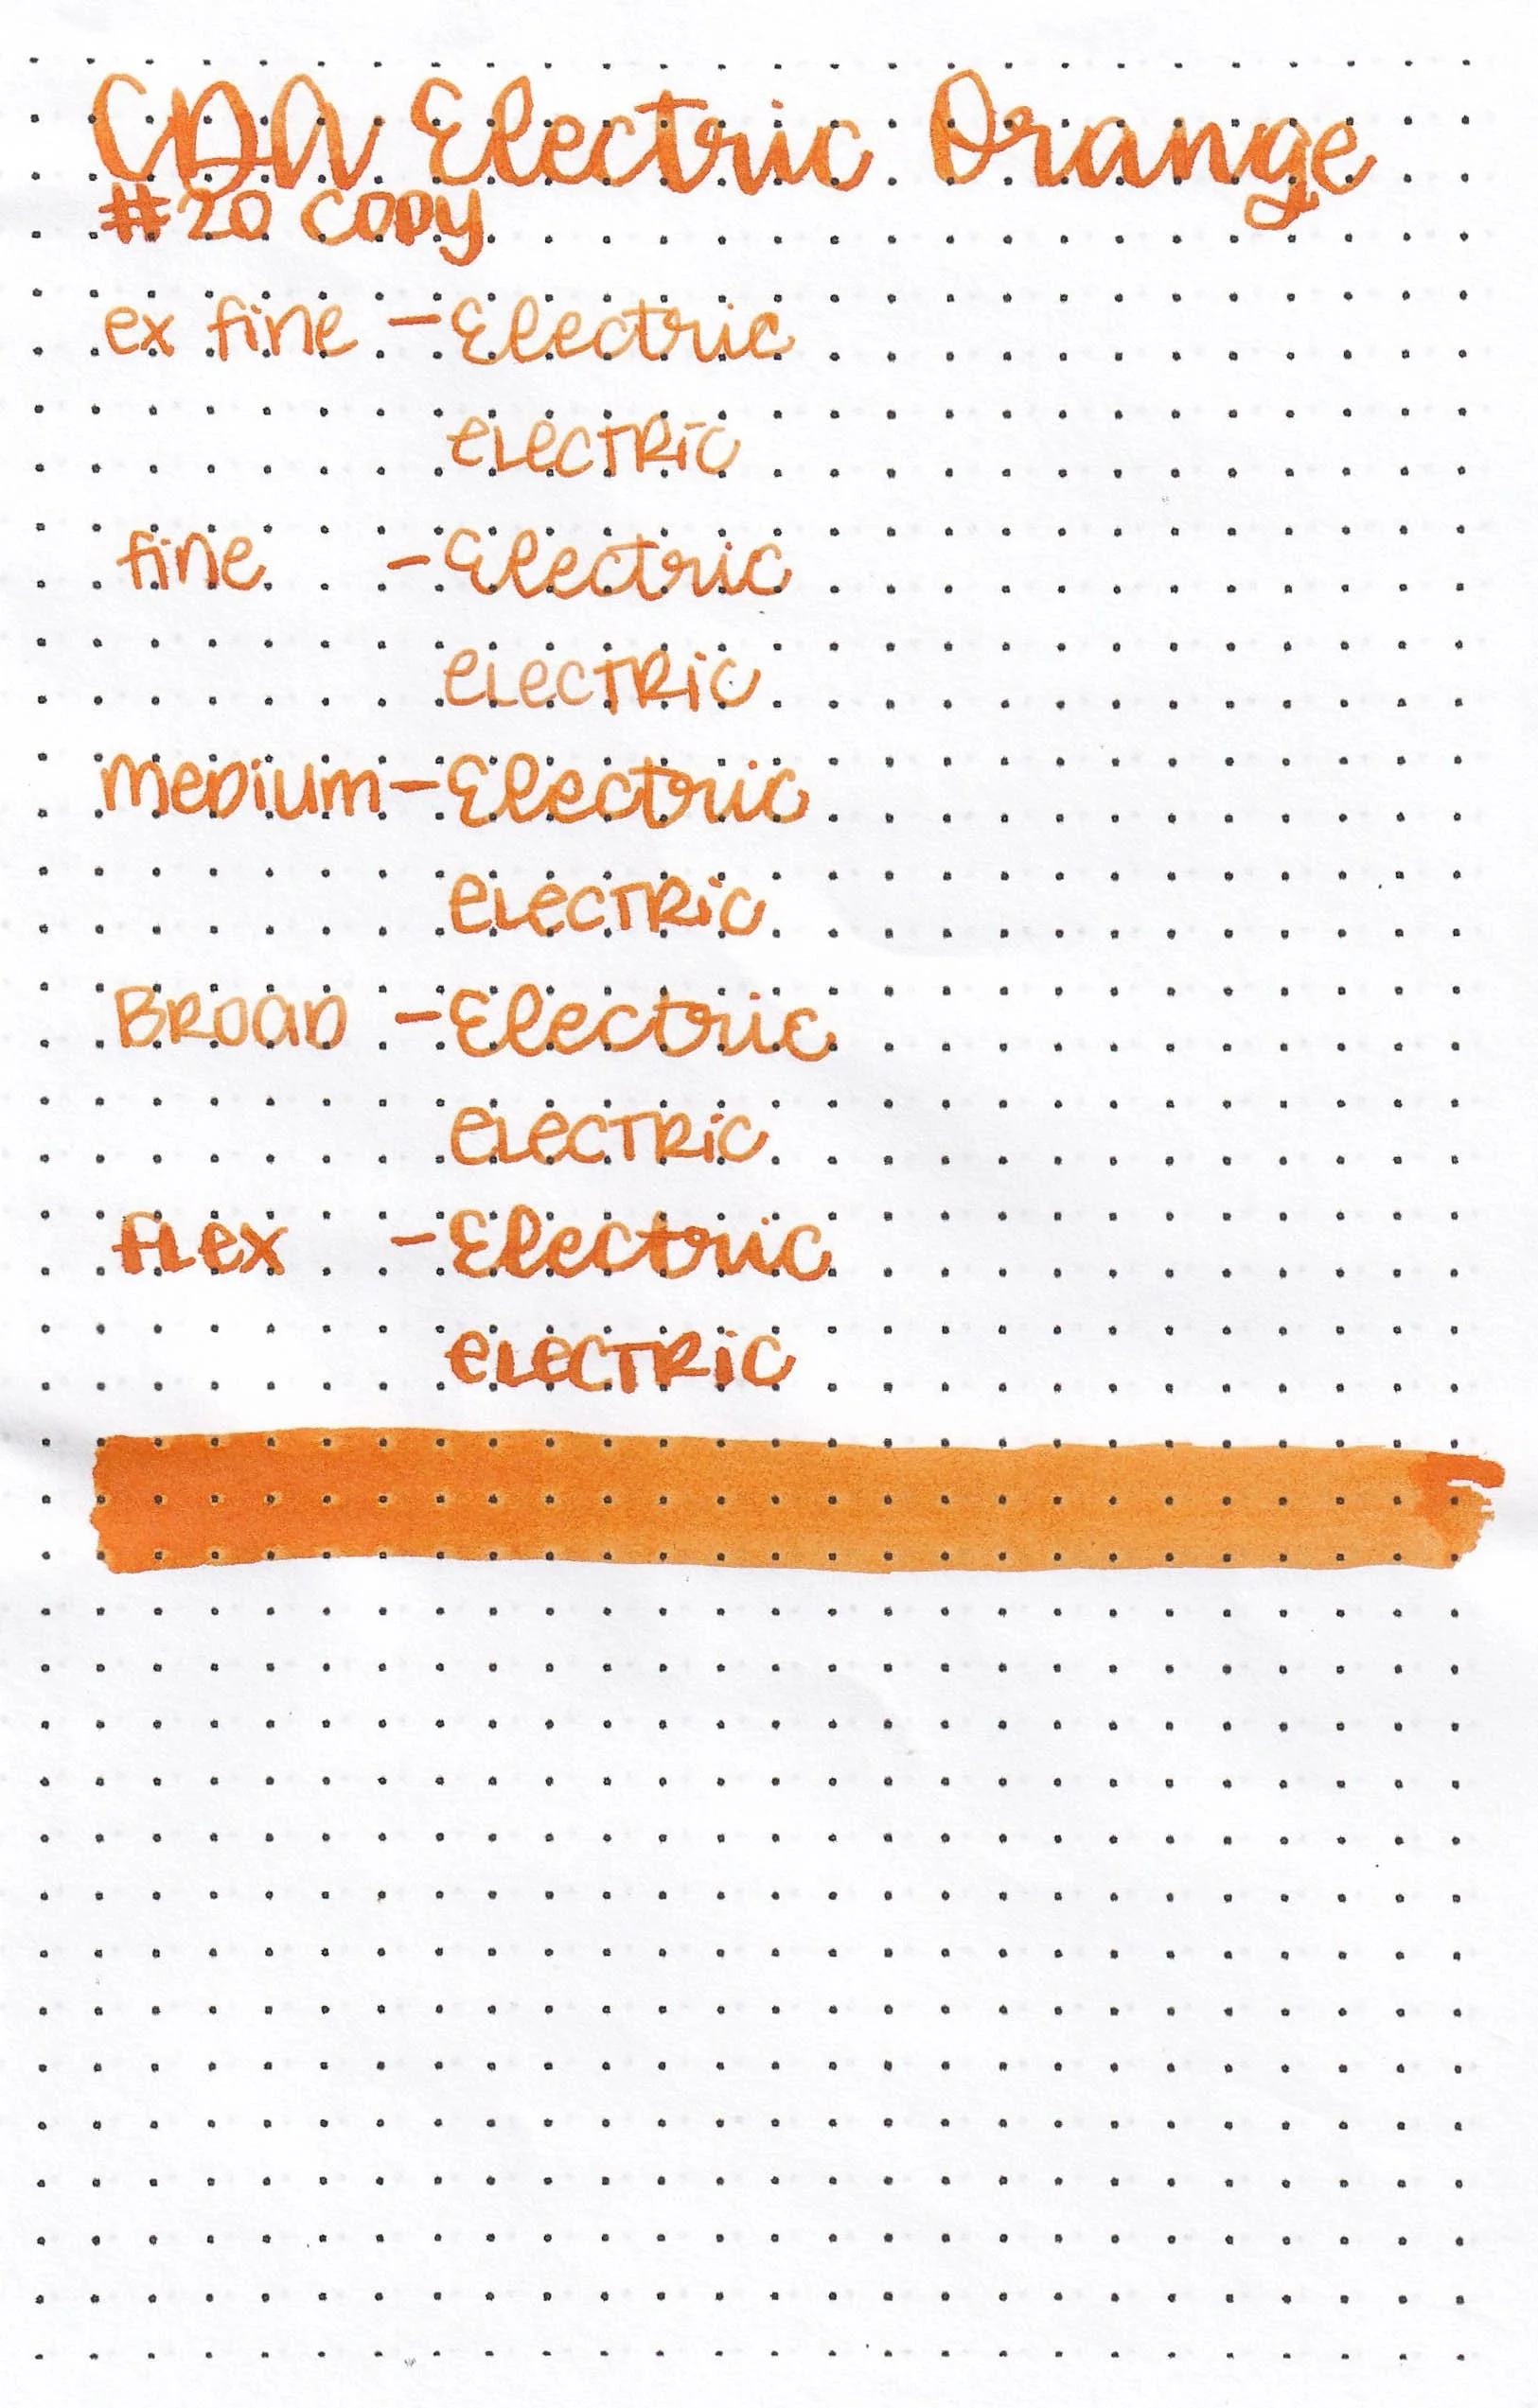 CDA Electric Orange
#20 COPY
ex fine - Electric
eLecTRic
fine - Electric
eLecTRic
meDium - Electric
eLecTRic
BROAD - Electric
eLecTRic
fLex - Electric
eLecTRic